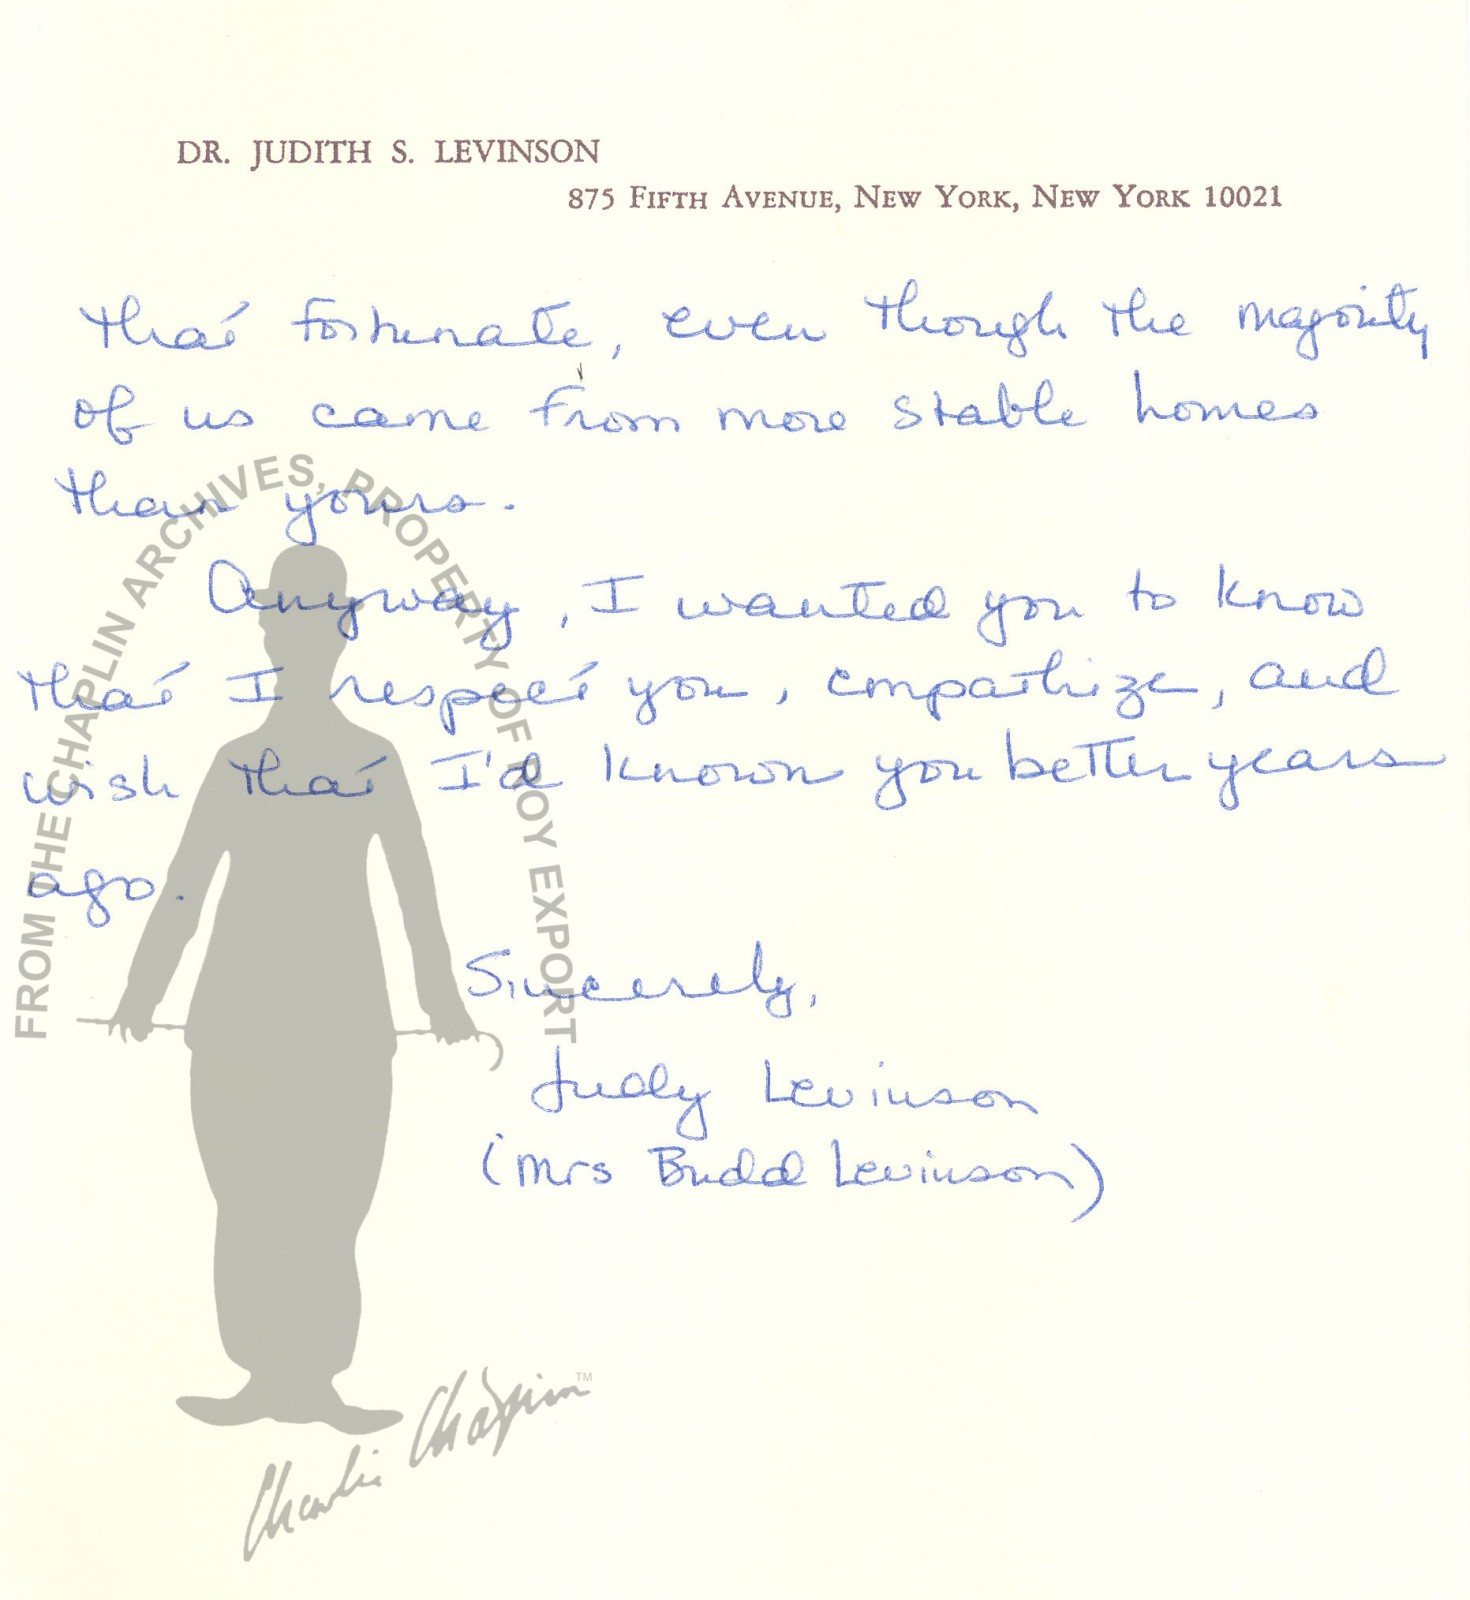 DR. JUDITH S. LEVINSON
875 FIFTH AVENUE, NEW YORK, NEW YORK 10021
that fortunate, even though the majority
of us came from more stable homes
than yours.
Anyway, I wanted you to know
that I respect you, empathize, and
wish that I'd known you better years
ago.
Sincerely,
Judy Levinson
(Mrs Budd Levinson)
FROM THE CHAPLIN ARCHIVES, PROPERTY OF ROY EXPORT
Charlie Chaplin™